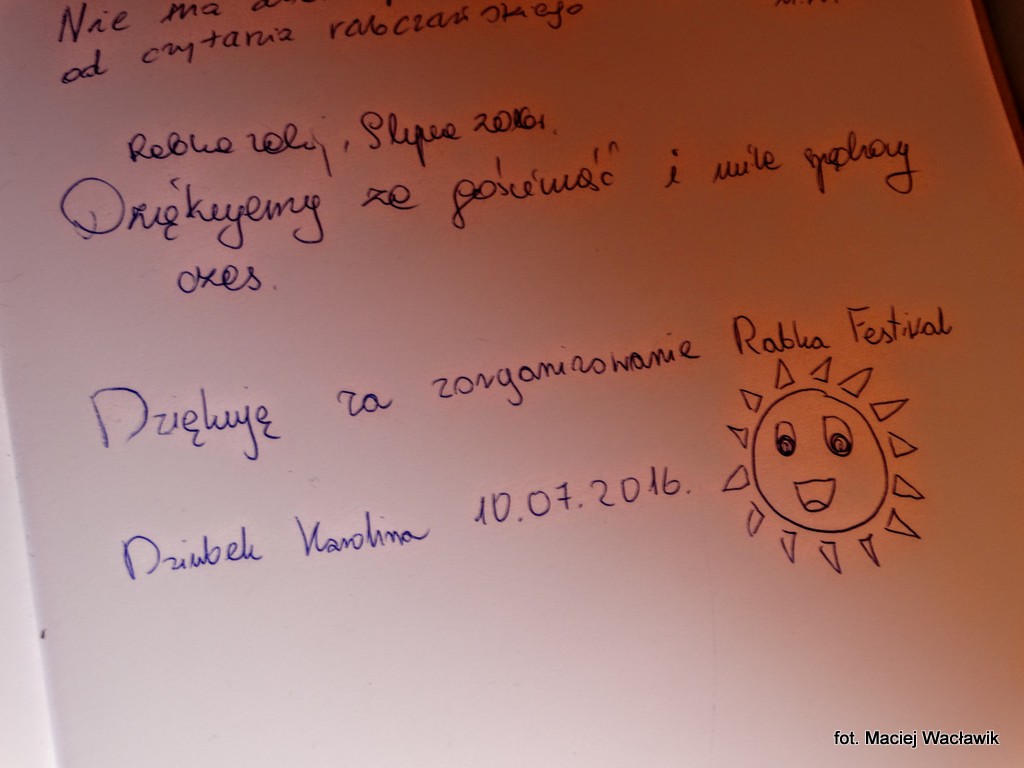 Nie ma
od czytania rabczańskiego
Rabka Zdrój, 9 lipca 2016r.
Dziękujemy za gościnność i mile spędzony
czas.
Dziękuję za zorganizowanie Rabka Festival
Dziubek Karolina 10.07.2016.
fot. Maciej Wacławik